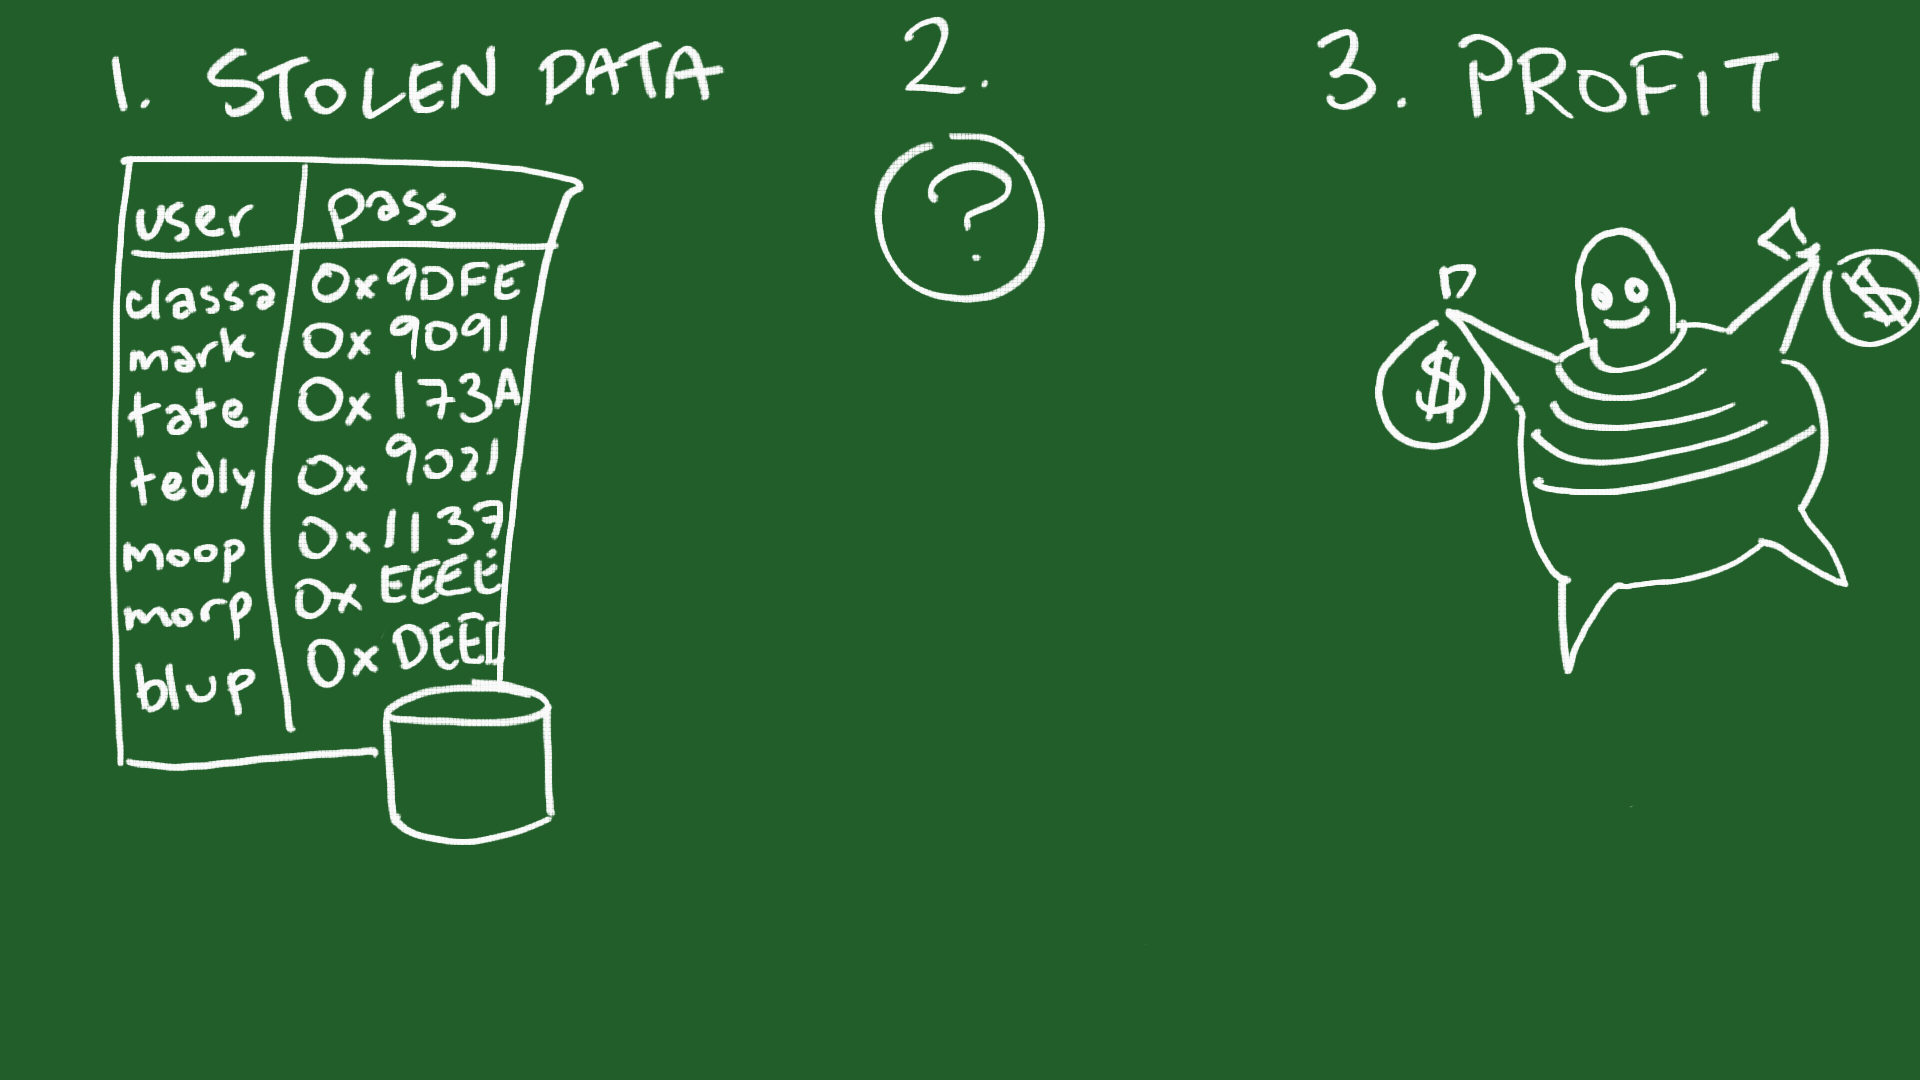 1. STOLEN DATA
2.
3. PROFIT
user pass
classa 0x9DFE
mark 0x9091
tate 0x173A
tedly 0x9021
moop 0x1137
morp 0xEEEE
blup 0xDEED
?
$
$